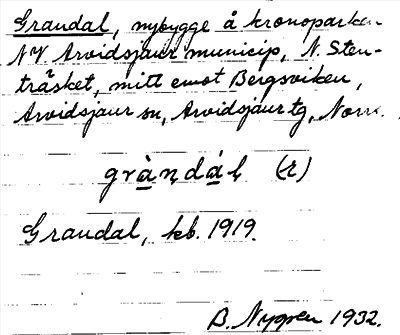 Grandal, nybygge å kronoparken
NV Arvidsjaur municip, N. Sten-
träsket, mitt emot Bergsviken,
Arvidsjaur sn, Arvidsjaur tg, Norr.
gràndáļ (r)
Grandal, kb. 1919.
B. Nygren 1932.